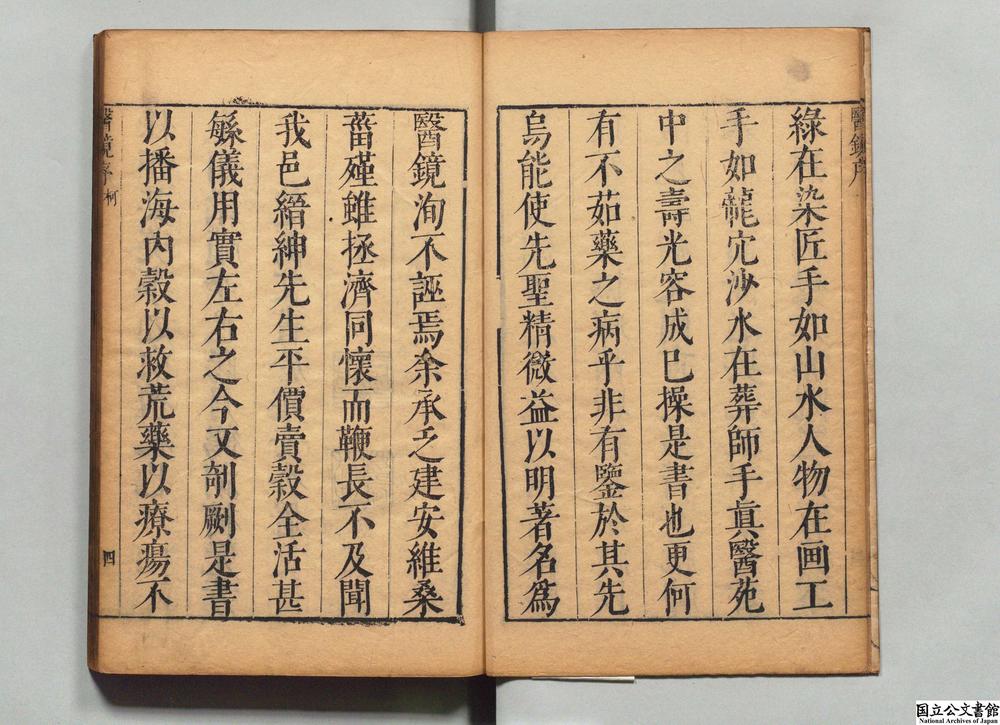 綠在染匠手如山水人物在画工
手如龍穴沙水在葬師手眞醫苑
中之壽光容成已操是書也更何
有不茹藥之病乎非有鑒於其先
烏能使先聖精微益以明著名爲
醫鏡洵不誣焉余承乏建安維桑
菑殣雖拯濟同懷而鞭長不及聞
我邑縉紳先生平價賣穀全活甚
緐儀用實左右之今又剞劂是書
以播海內穀以救荒藥以療瘍不
醫鏡序
四
国立公文書館
National Archives of Japan